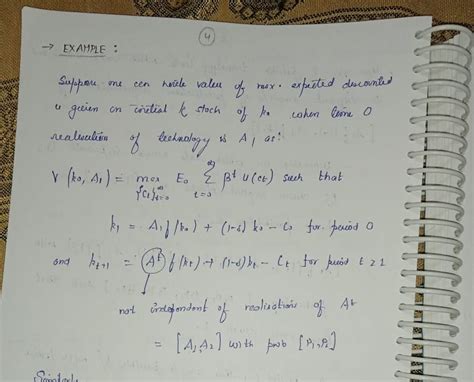 4
→ EXAMPLE :
Suppose one can write value of max. expected discounted
u given an initial k stock of k₀ when time 0
realisation of technology is A₁ as:
V (k₀, A₁) = max E₀ ∑ βᵗ u(cₜ) such that
{Cₜ}ₜ₌₀^∞ t=0 ∞
k₁ = A₁ f(k₀) + (1-δ) k₀ - C₀ for period 0
and kₜ₊₁ = Aᵗ f(kₜ) + (1-δ)kₜ - Cₜ for period t ≥ 1
not independent of realisations of Aᵗ
= [A₁, A₂] with prob [P₁, P₂]